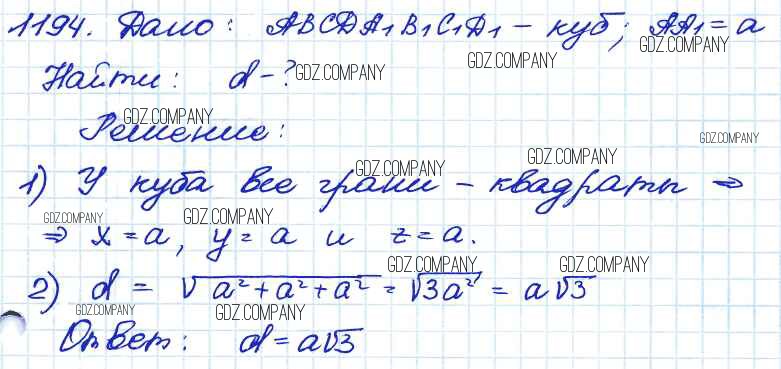 1194. Дано: ABCDA₁B₁C₁D₁ – куб; AA₁ = a
GDZ.COMPANY
GDZ.COMPANY
Найти: d – ?
GDZ.COMPANY
GDZ.COMPANY
Решение:
GDZ.COMPANY
GDZ.COMPANY
GDZ.COMPANY
1) У куба все грани – квадраты ⇒
GDZ.COMPANY
GDZ.COMPANY
GDZ.COMPANY
⇒ x = a, y = a и z = a.
GDZ.COMPANY
GDZ.COMPANY
2) d = √(a² + a² + a²) = √(3a²) = a√3
GDZ.COMPANY
GDZ.COMPANY
Ответ: d = a√3